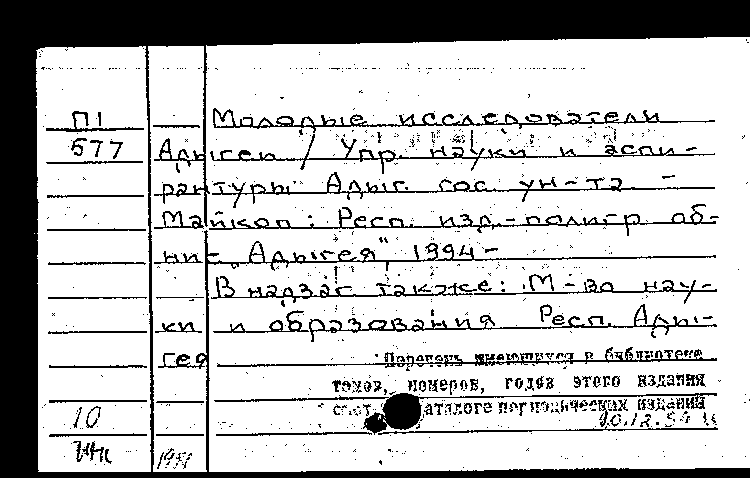 П1
577
Молодые исследователи
Адыгеи / Упр. науки и аспи-
рантуры Адыг. гос. ун-та. -
Майкоп: Респ. изд.-полигр об-
ние „Адыгея", 1994 -
В надзаг также: М-во нау-
ки и образования Респ. Ады-
гея
Перечень имеющихся в библиотеке
томов, номеров, годов этого издания
каталоге периодических изданий
10